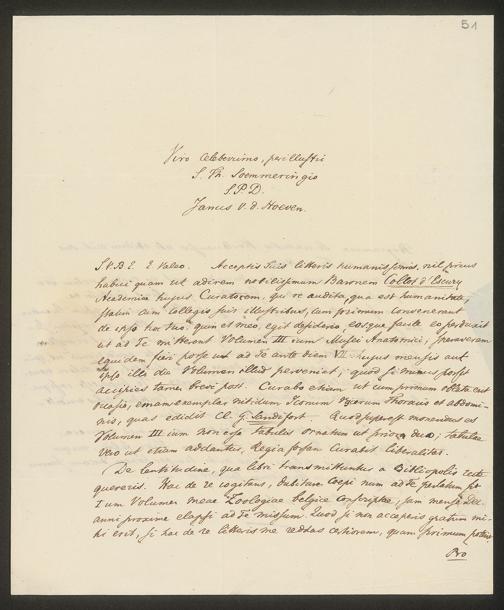 51
Viro Celeberrimo, perillustri
S. Th. Soemmeringio
S.P.D.
Janus v. d. Hoeven.
S.V.B.E. E. Valeo. Acceptis Tuis litteris humanissimis, nil prius
habui quam ut adirem nobilissimum Baronem Collot d'Escury
Academiae hujus Curatorem, qui re audita, qua est humanitate,
statim cum Collegis suis illustribus, cum primum convenerant
de ipso hortus, quin et meo, egit desiderio, eosque facile eo perduxit
ut ad Te mitterent Volumen III ium Musei Anatomici; speraveram
equidem fieri posse ut ad Te ante diem VII hujus mensis aut
ipso illo die Volumen illud perveniat; quod si minus possit
accipies tamen brevi post. Curabo etiam ut cum primum oblata erit
occasio, emam exemplar nitidum Iconum Viscerum Thoracis et abdomi-
nis, quas edidit Cl. G. Sandifort. Quod superest monendus es
Volumen III ium non esse tabulis ornatum ut priora duo; tabulae
vero ut etiam addantur, Regia forsan curabit liberalitas.
De lentitudine, qua libri transmittuntur a Bibliopolis recte
quereris. Hac de re cogitans, dubitare coepi num ad Te perlatum sit
I um Volumen meae Zoologiae belgice conscriptae, jam mense Dec.
anni proxime elapsi ad Te missum. Quod si non acceperis gratum mi-
hi erit, si hac de re litteris me reddas certiorem, quam primum poteris.
Pro